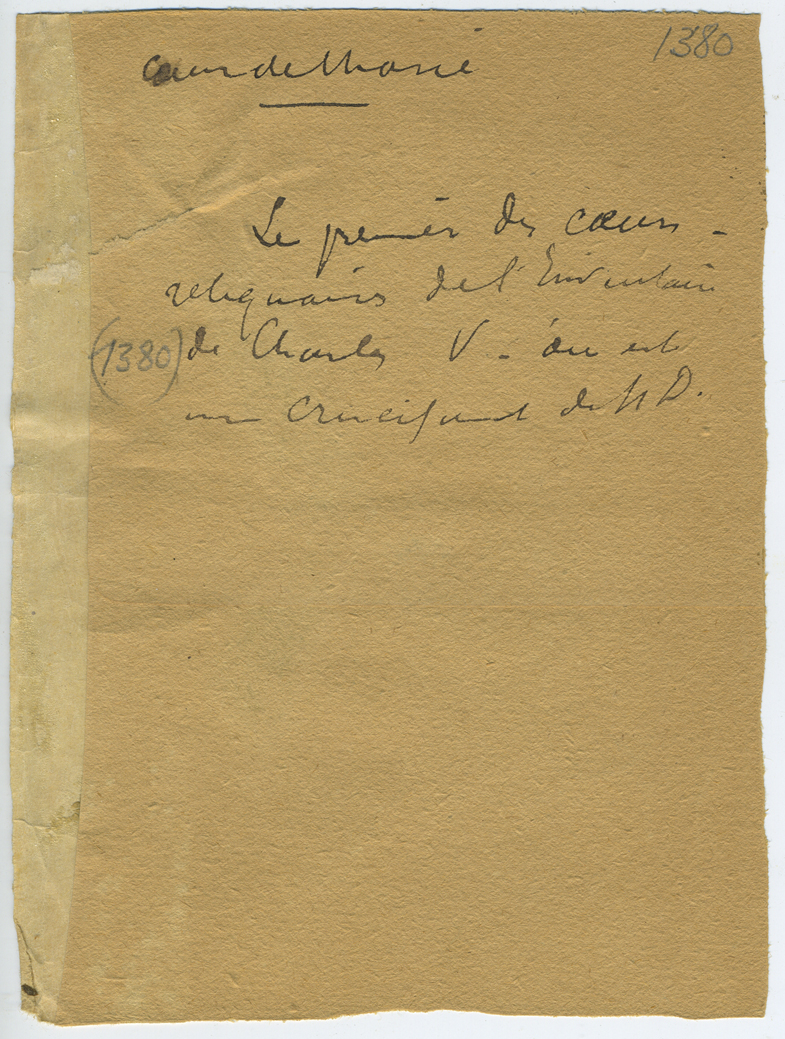 1380
Cœur de Marie
Le premier des cœurs-
reliquaires de l'Inventaire
(1380) de Charles V - où est
un crucifiement de N D.